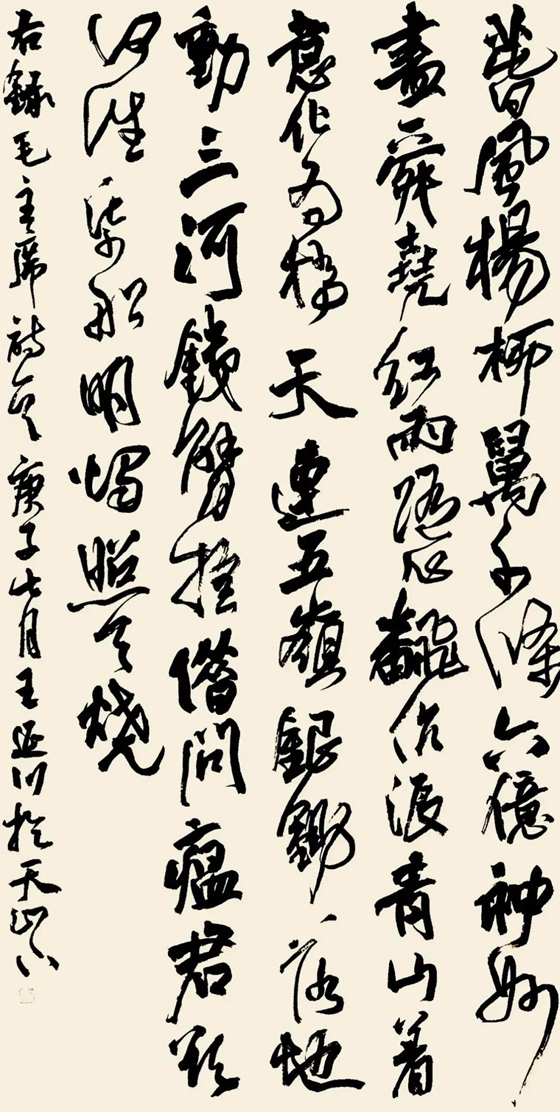 萅風楊柳萬千條六億神州
盡舜堯紅雨隨心飜作浪青山着
意化為橋天連五嶺銀鋤落地
動三河鐵臂搖借問瘟君欲
何往紙船明燭照天燒
右錄毛主席詩一首庚子七月王延川於天山下